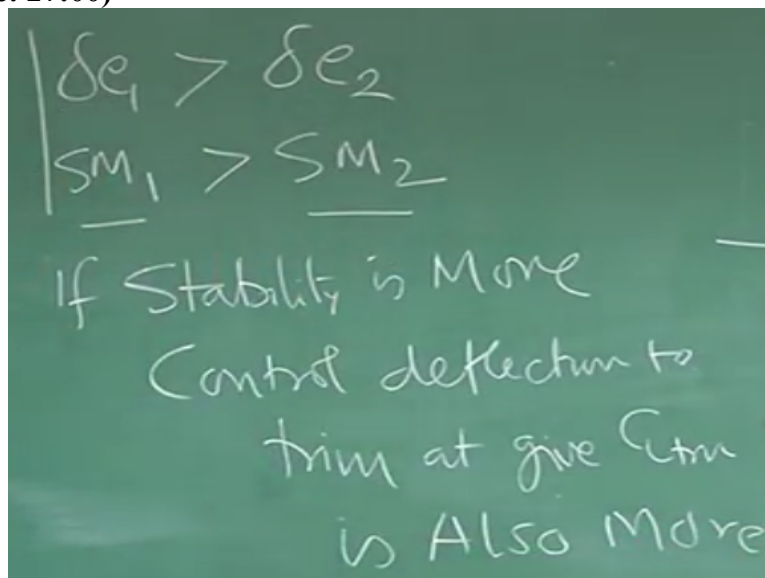 δe₁ > δe₂
SM₁ > SM₂
If Stability is More
Control deflection to
trim at give CLtrim
is Also More